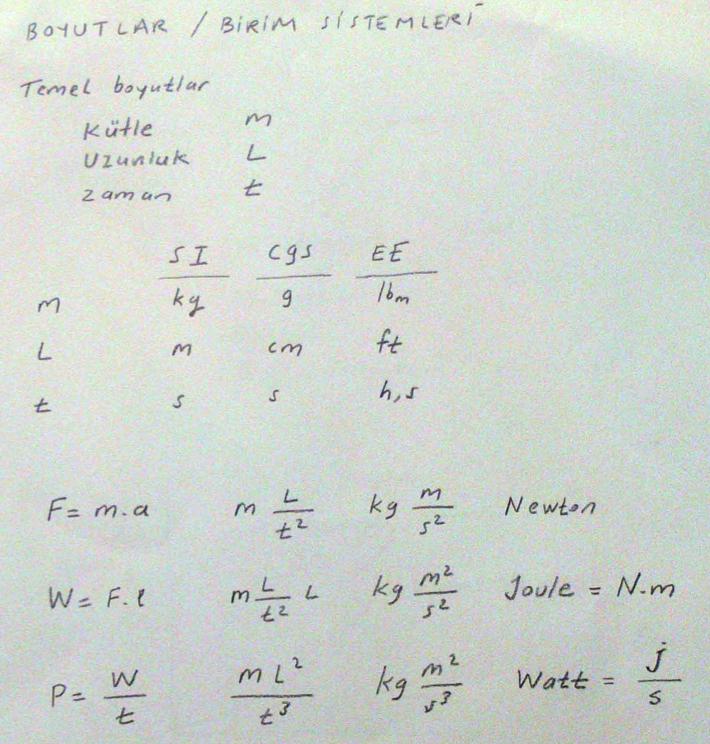 BOYUTLAR / BİRİM SİSTEMLERİ
Temel boyutlar
Kütle m
Uzunluk L
zaman t
SI cgs EE
m kg g lbm
L m cm ft
t s s h,s
F = m.a m L/t² kg m/s² Newton
W = F.l m L/t² L kg m²/s² Joule = N.m
P = W/t mL²/t³ kg m²/s³ Watt = j/s